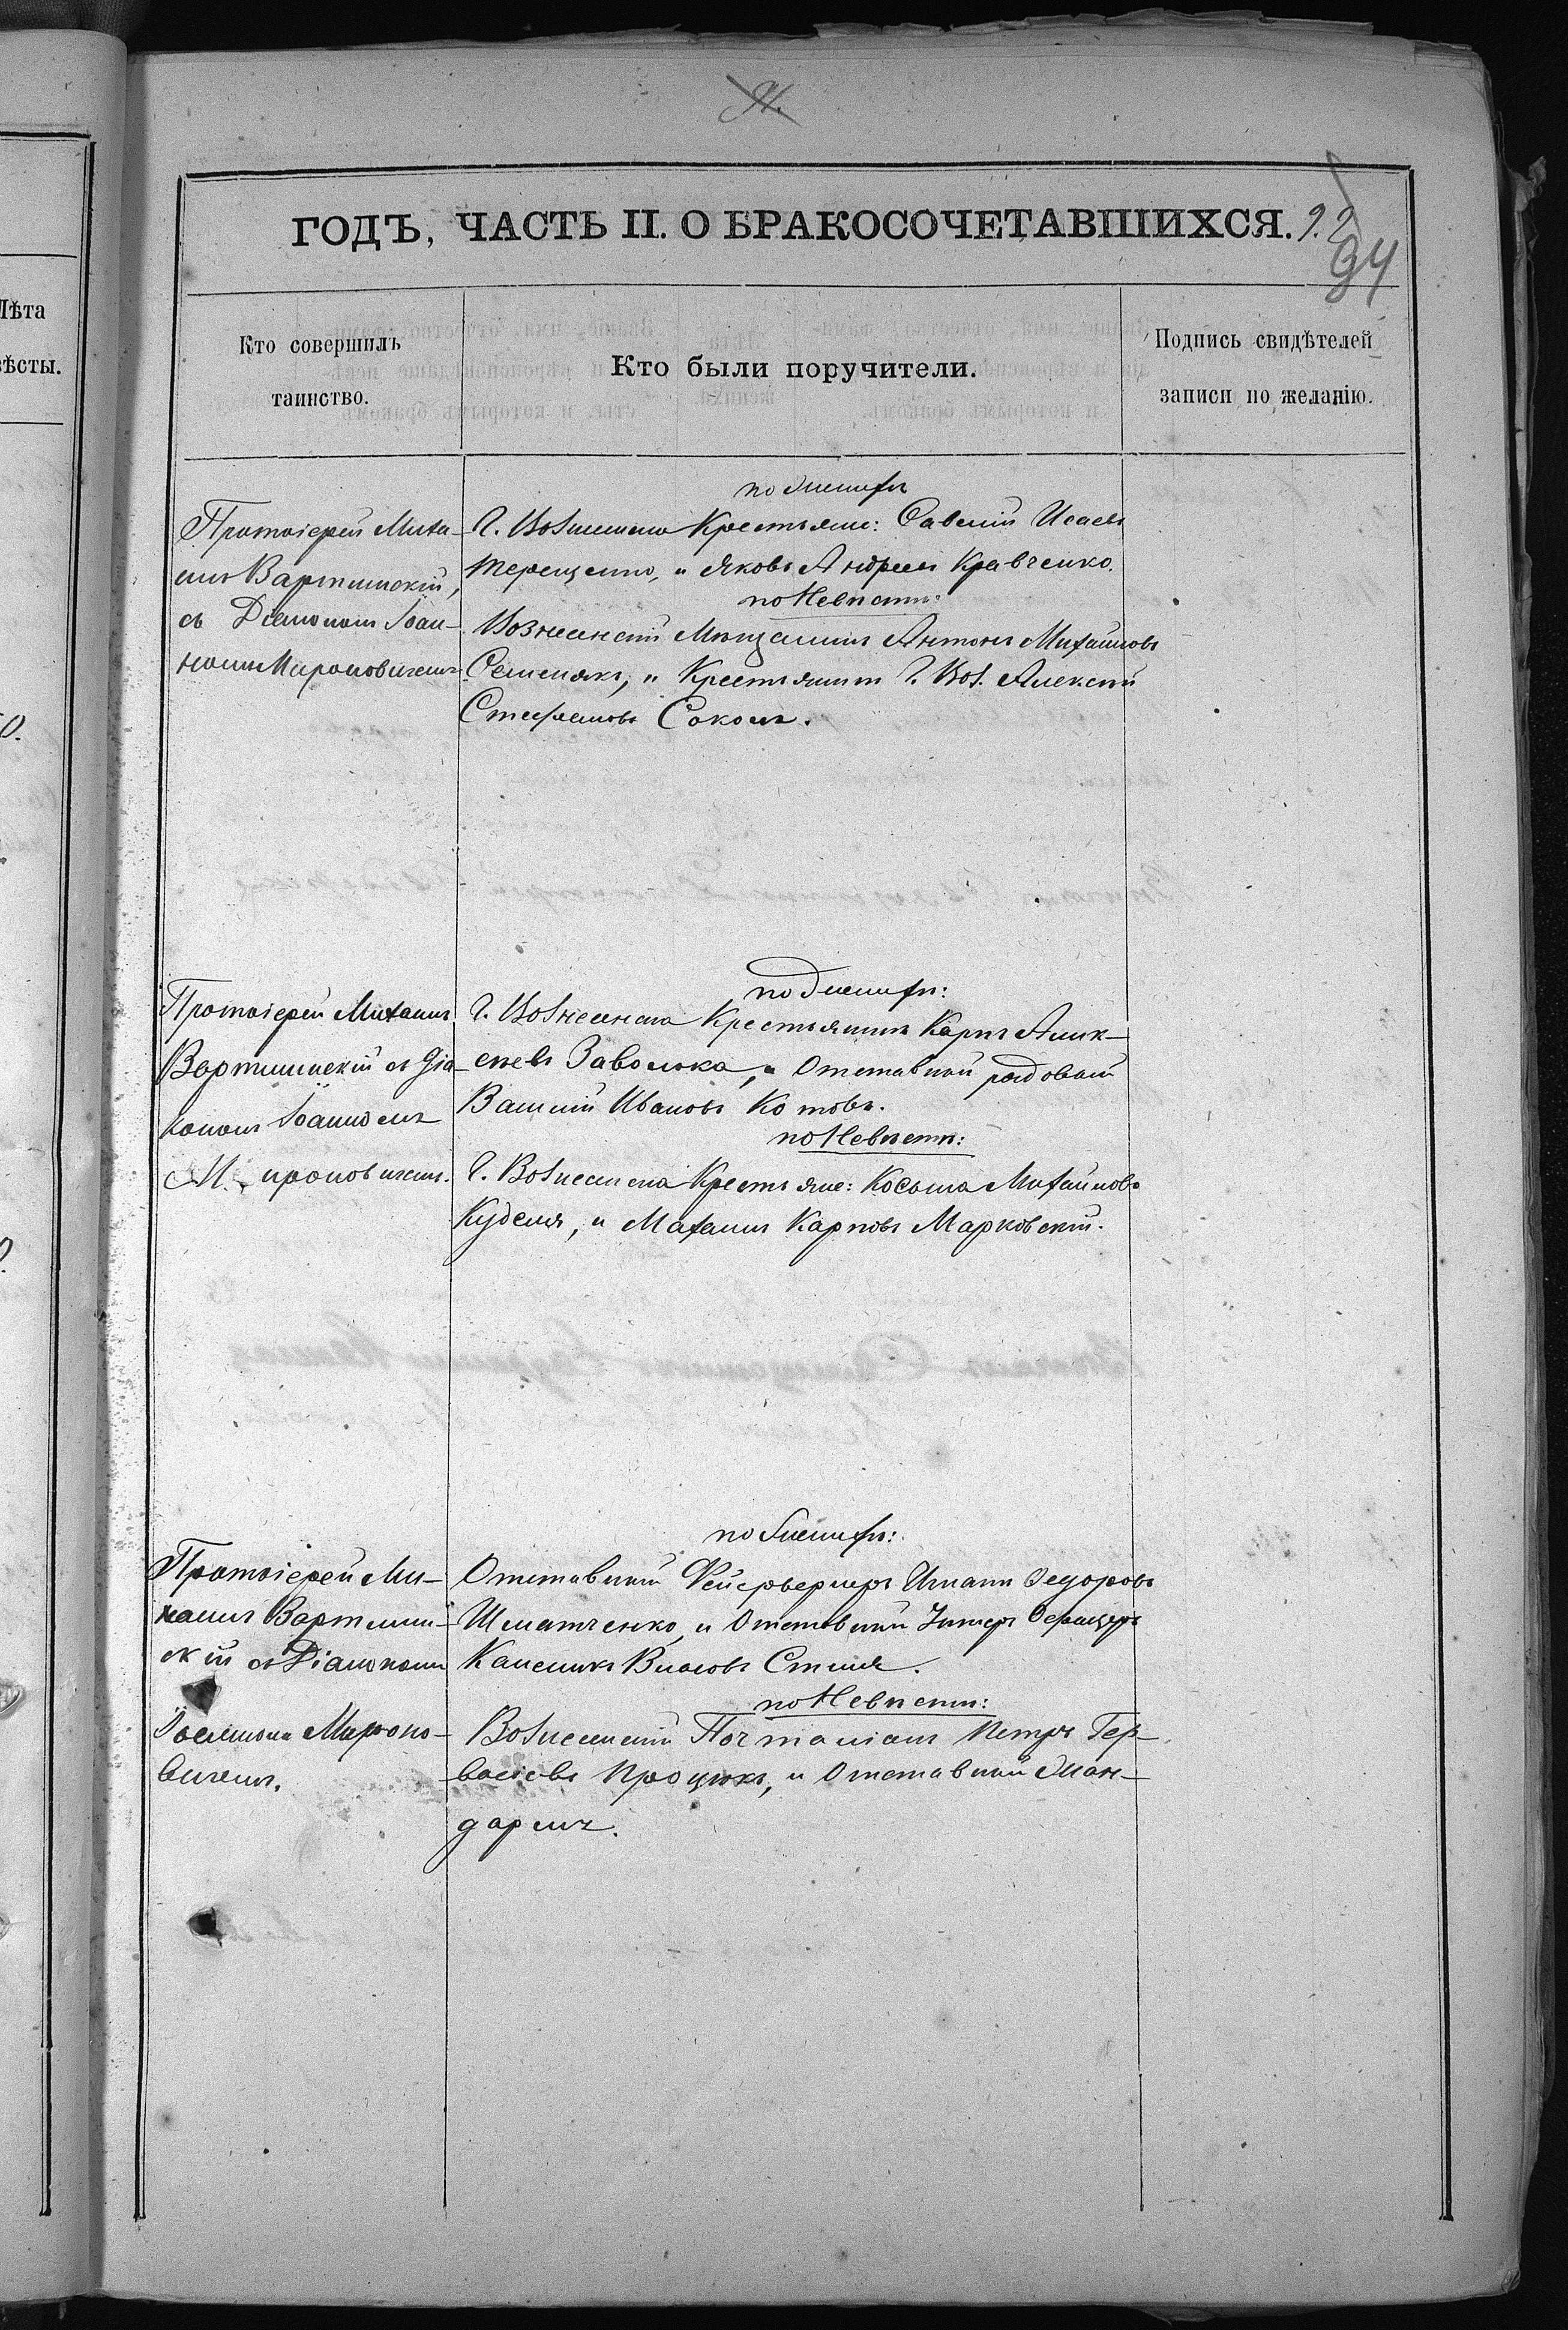 91.
ГОДЪ, ЧАСТЬ II. О БРАКОСОЧЕТАВШИХСЯ. 92
94
Лѣта
вѣсты.
Кто совершилъ
таинство.
Кто были поручители.
Подпись свидѣтелей
записи по желанію.
по Женихѣ
Протоіерей Миха-
илъ Вартминскій,
съ Діакономъ Іоан-
номъ Мироновичемъ
Г. Вознесенска Крестьяне: Савелій Исаевъ
Терещенко, и Яковъ Андреевъ Кравченко.
по Невѣстѣ:
Вознесенскій Мѣщанинъ Антонъ Михайловъ
Семенякъ, и Крестьянинъ Г. Воз. Алексѣй
Стефановъ Соколъ.
по Женихѣ:
Протоіерей Михаилъ
Вартминскій съ Діа-
кономъ Іоанномъ
Мироновичемъ.
Г. Вознесенска Крестьянинъ Карпъ Алек-
сѣевъ Заволока, и Отставной рядовой
Василій Ивановъ Котовъ.
по Невѣстѣ:
Г. Вознесенска Крестьяне: Косьма Михайловъ
Куделя, и Михаилъ Карповъ Марковскій.
по Женихѣ:
Протоіерей Ми-
хаилъ Вартмин-
скій съ Діакономъ
Іоанномъ Мироно-
вичемъ.
Отставной Фейерверкеръ Игнатъ Федоровъ
Шматченко, и Отставной Унтеръ Офицеръ
Власовъ
по Невѣстѣ:
Вознесенскій Почталіонъ Петръ Гер-
васіевъ Процюкъ, и Отставной Жан-
дармъ.